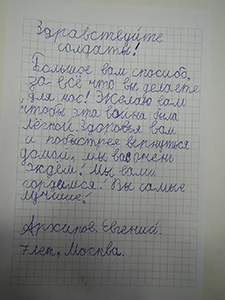 Здравствуйте
солдаты!
Большое вам спосибо,
за всё что вы делаете
для нас! Желаю вам
чтобы эта война была
лёгкой, здоровья вам
и побыстрее вернуться
домой, мы вас очень
ждём! Мы вами
гордимся! Вы самые
лучшие!
Архипов. Евгений.
7 лет, Москва.